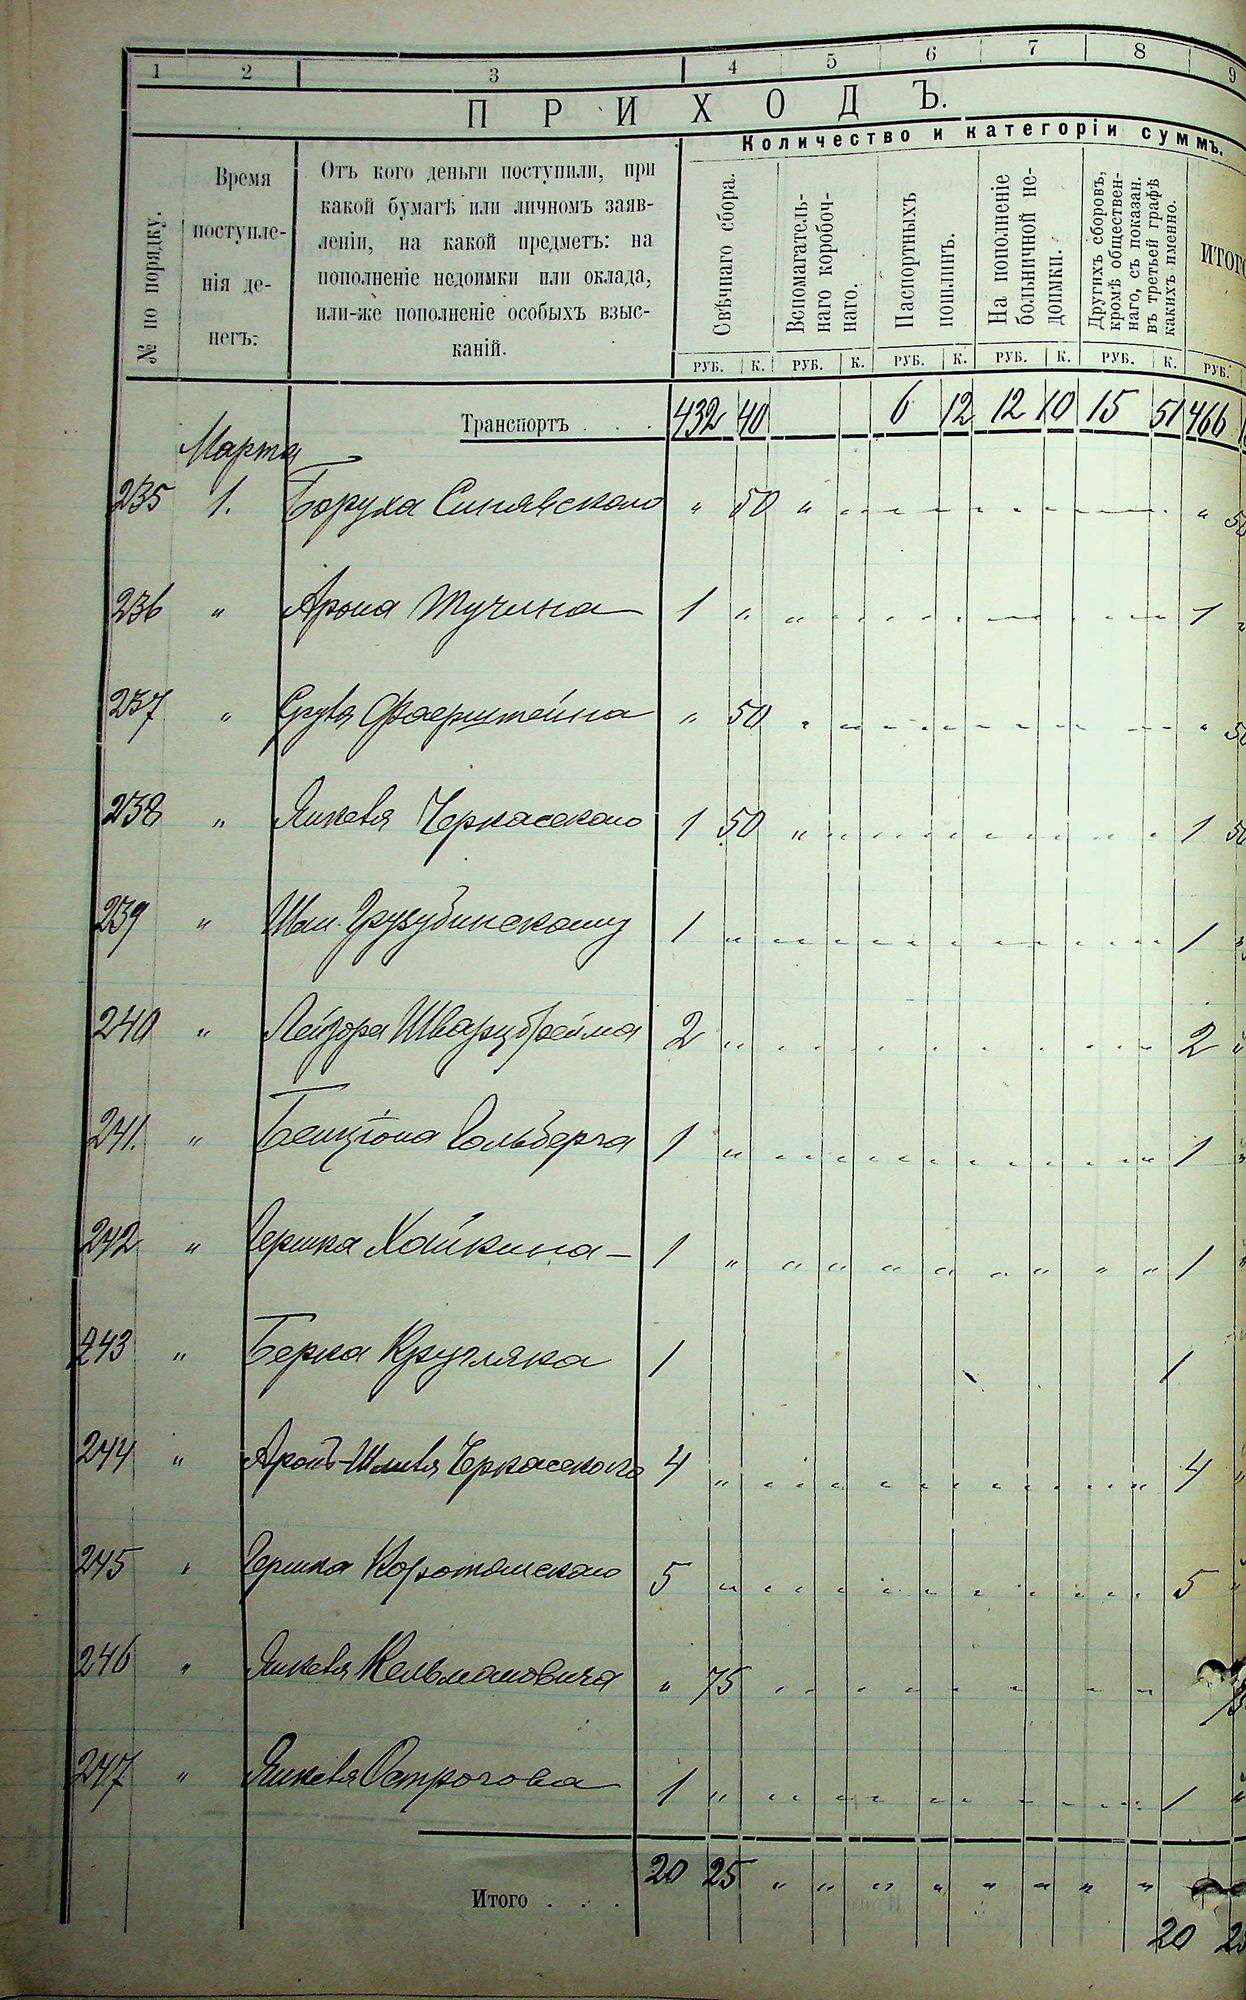 1 2 3 4 5 6 7 8 9
ПРИХОДЪ.
Количество и категоріи суммъ.
№ по порядку.
Время
поступле-
нія де-
негъ:
Отъ кого деньги поступили, при
какой бумагѣ или личномъ заяв-
леніи, на какой предметъ: на
пополненіе недоимки или оклада,
или-же пополненіе особыхъ взыс-
каній.
Свѣчнаго сбора.
Вспомагатель-
наго коробоч-
наго.
Паспортныхъ
пошлинъ.
На пополненіе
больничной не-
доимки.
Другихъ сборовъ,
кромѣ обществен-
наго, съ показан.
въ третьей графѣ
какихъ именно.
ИТОГО
РУБ. К. РУБ. К. РУБ. К. РУБ. К. РУБ. К. РУБ.
Транспортъ . . . 432 40 6 12 12 10 15 51 466
Марта
235 1. Боруха Синявскаго " 50 " " 50
236 " Арона Тучина 1 " " 1
237 " Файерштейна " 50 " " 50
238 " Янкеля Черкасскаго 1 50 " 1 50
239 " 1 " 1
240 " Лейзора 2 " 2 "
241. " Бенціона Гольберга 1 " 1
242 " Гершка Хайкина — 1 " " " " " " " " " 1
243 " Берка Кругляка 1 1
244 " Черкасскаго 4 " 4 "
245 " Гершка 5 " 5 "
246 " Янкеля Кельмановича " 75
247 " Янкеля Острогова 1 " 1 "
Итого . . . 20 25 " " " " " " " "
20 25